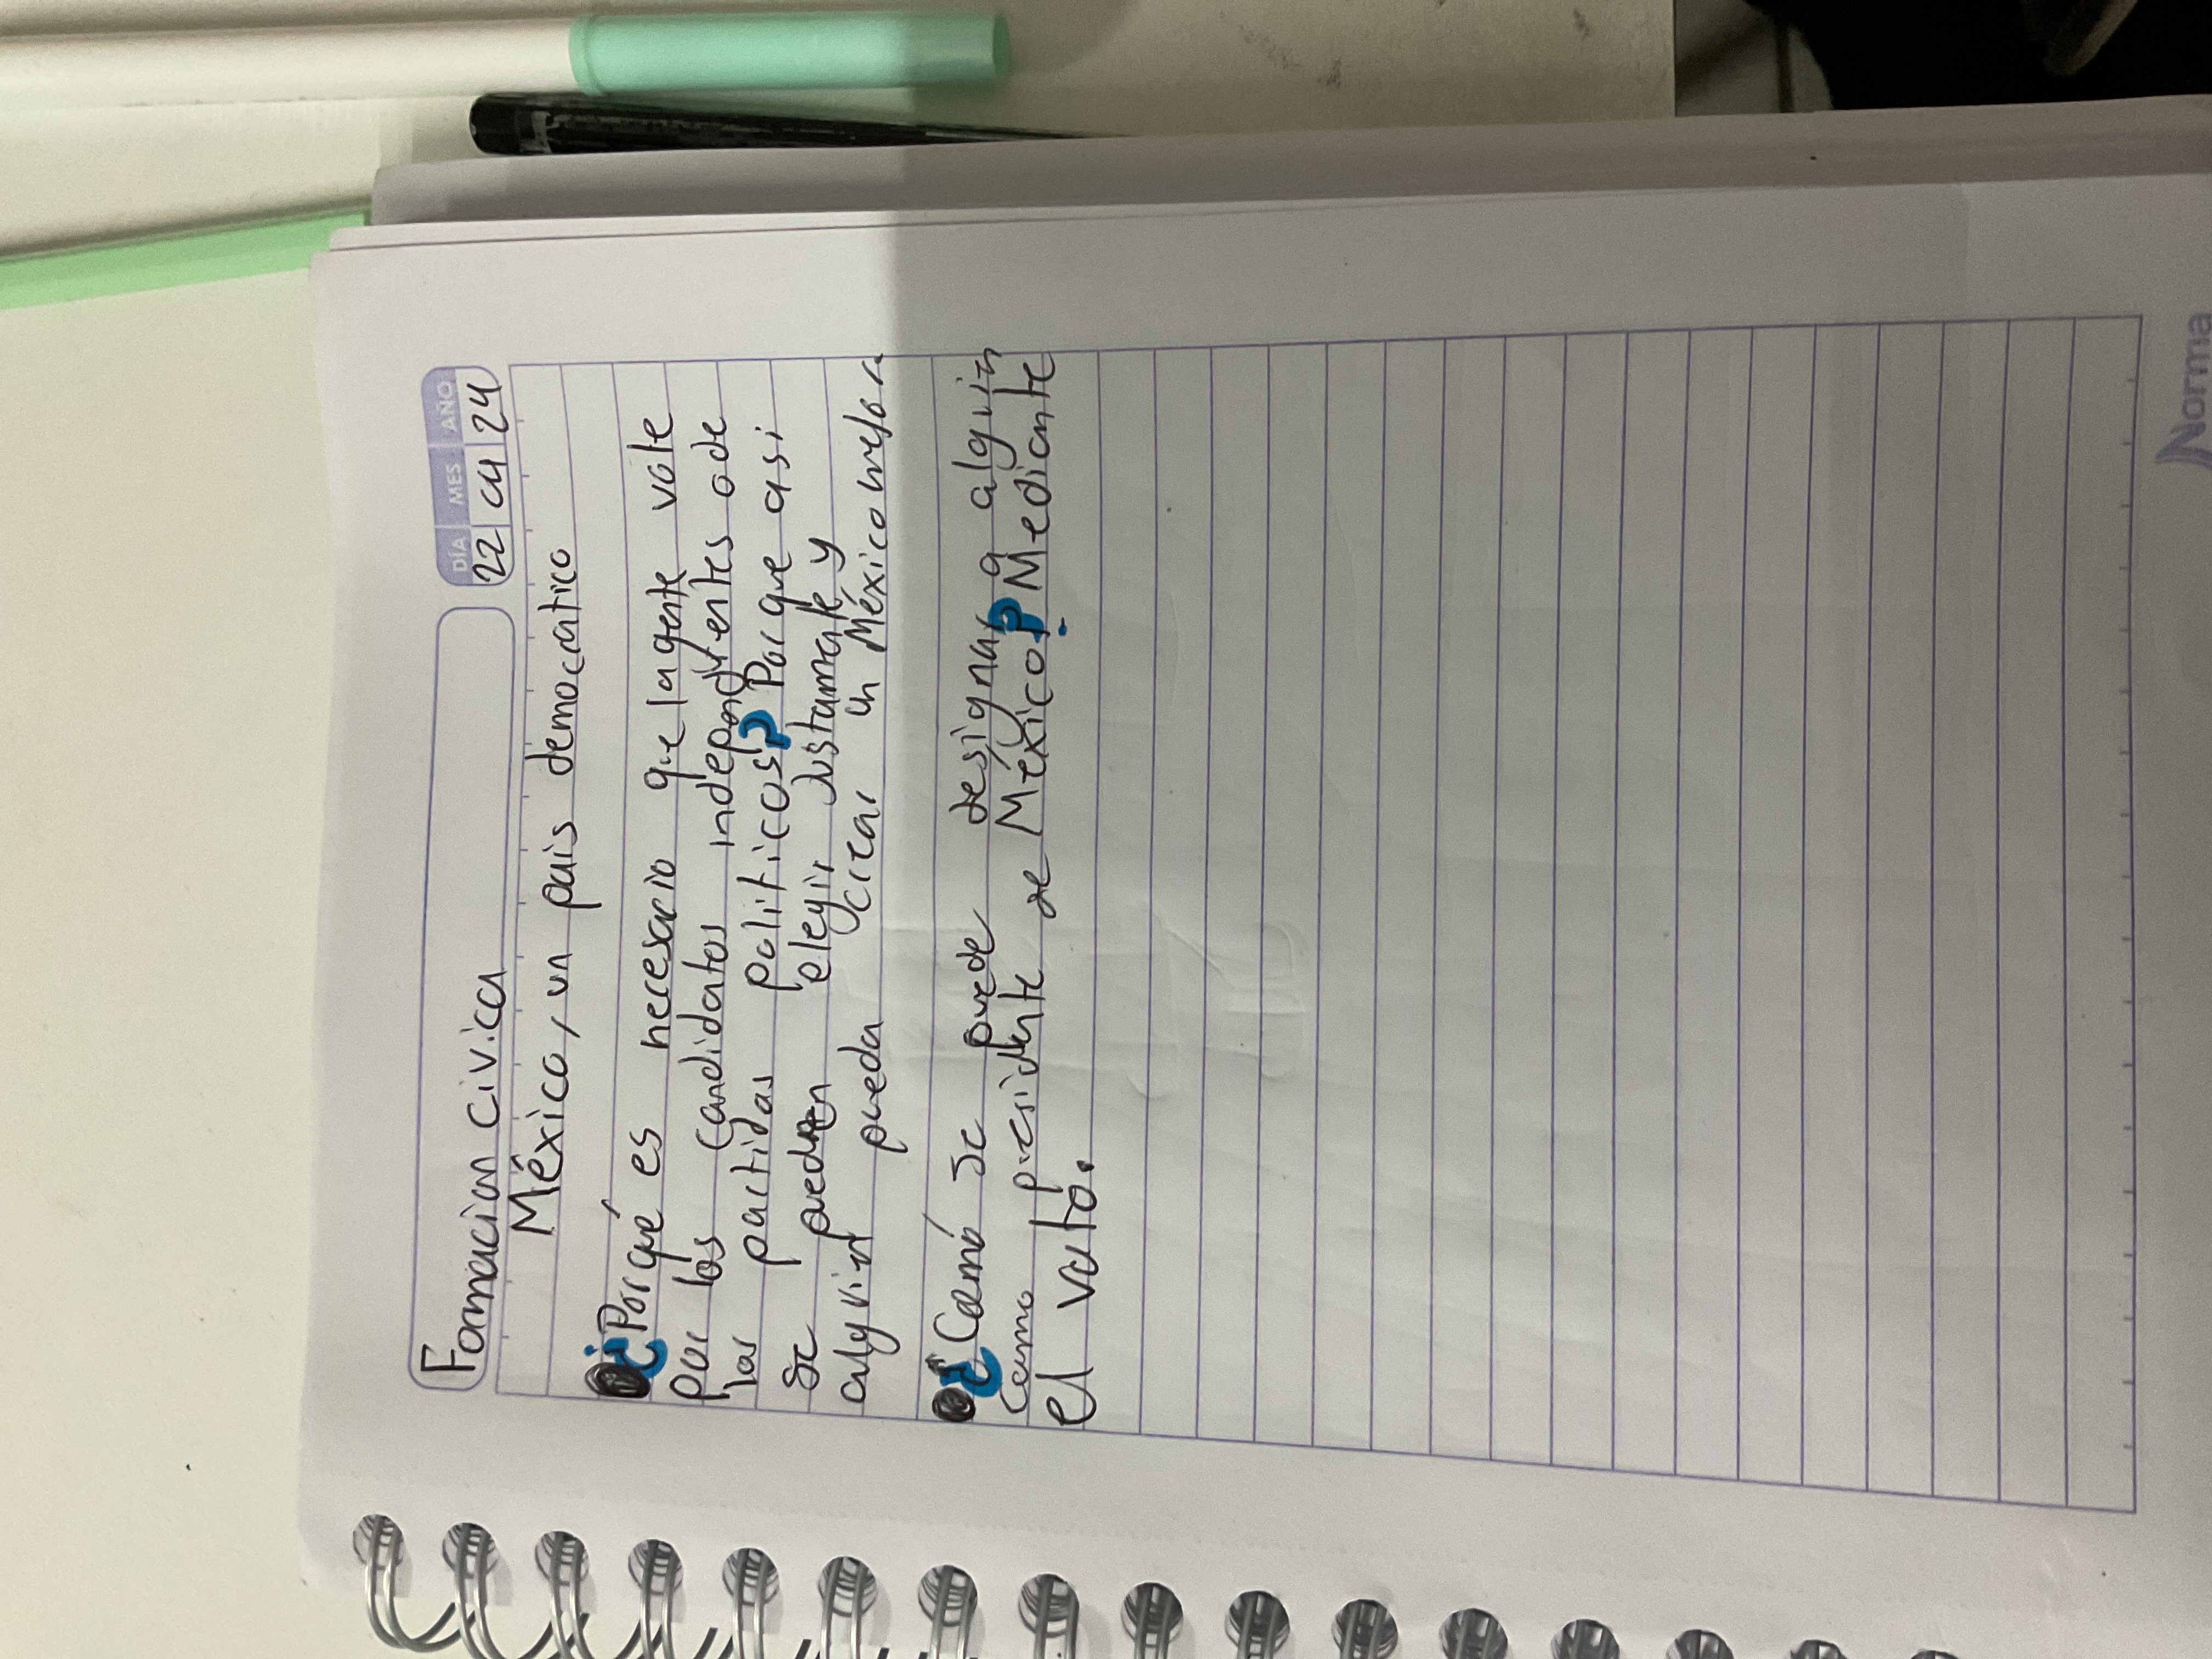 Formacion Civica
DÍA MES AÑO
22 04 24
México, un pais democratico
¿Porqué es necesario que la gente vote
por los candidatos independientes o de
los partidos politicos? Porque asi
se pueden elegir Justamente y
alguien pueda crear un México mejor.
¿Comó se puede designar a alguien
como presidente de México? Mediante
el voto.
Norma